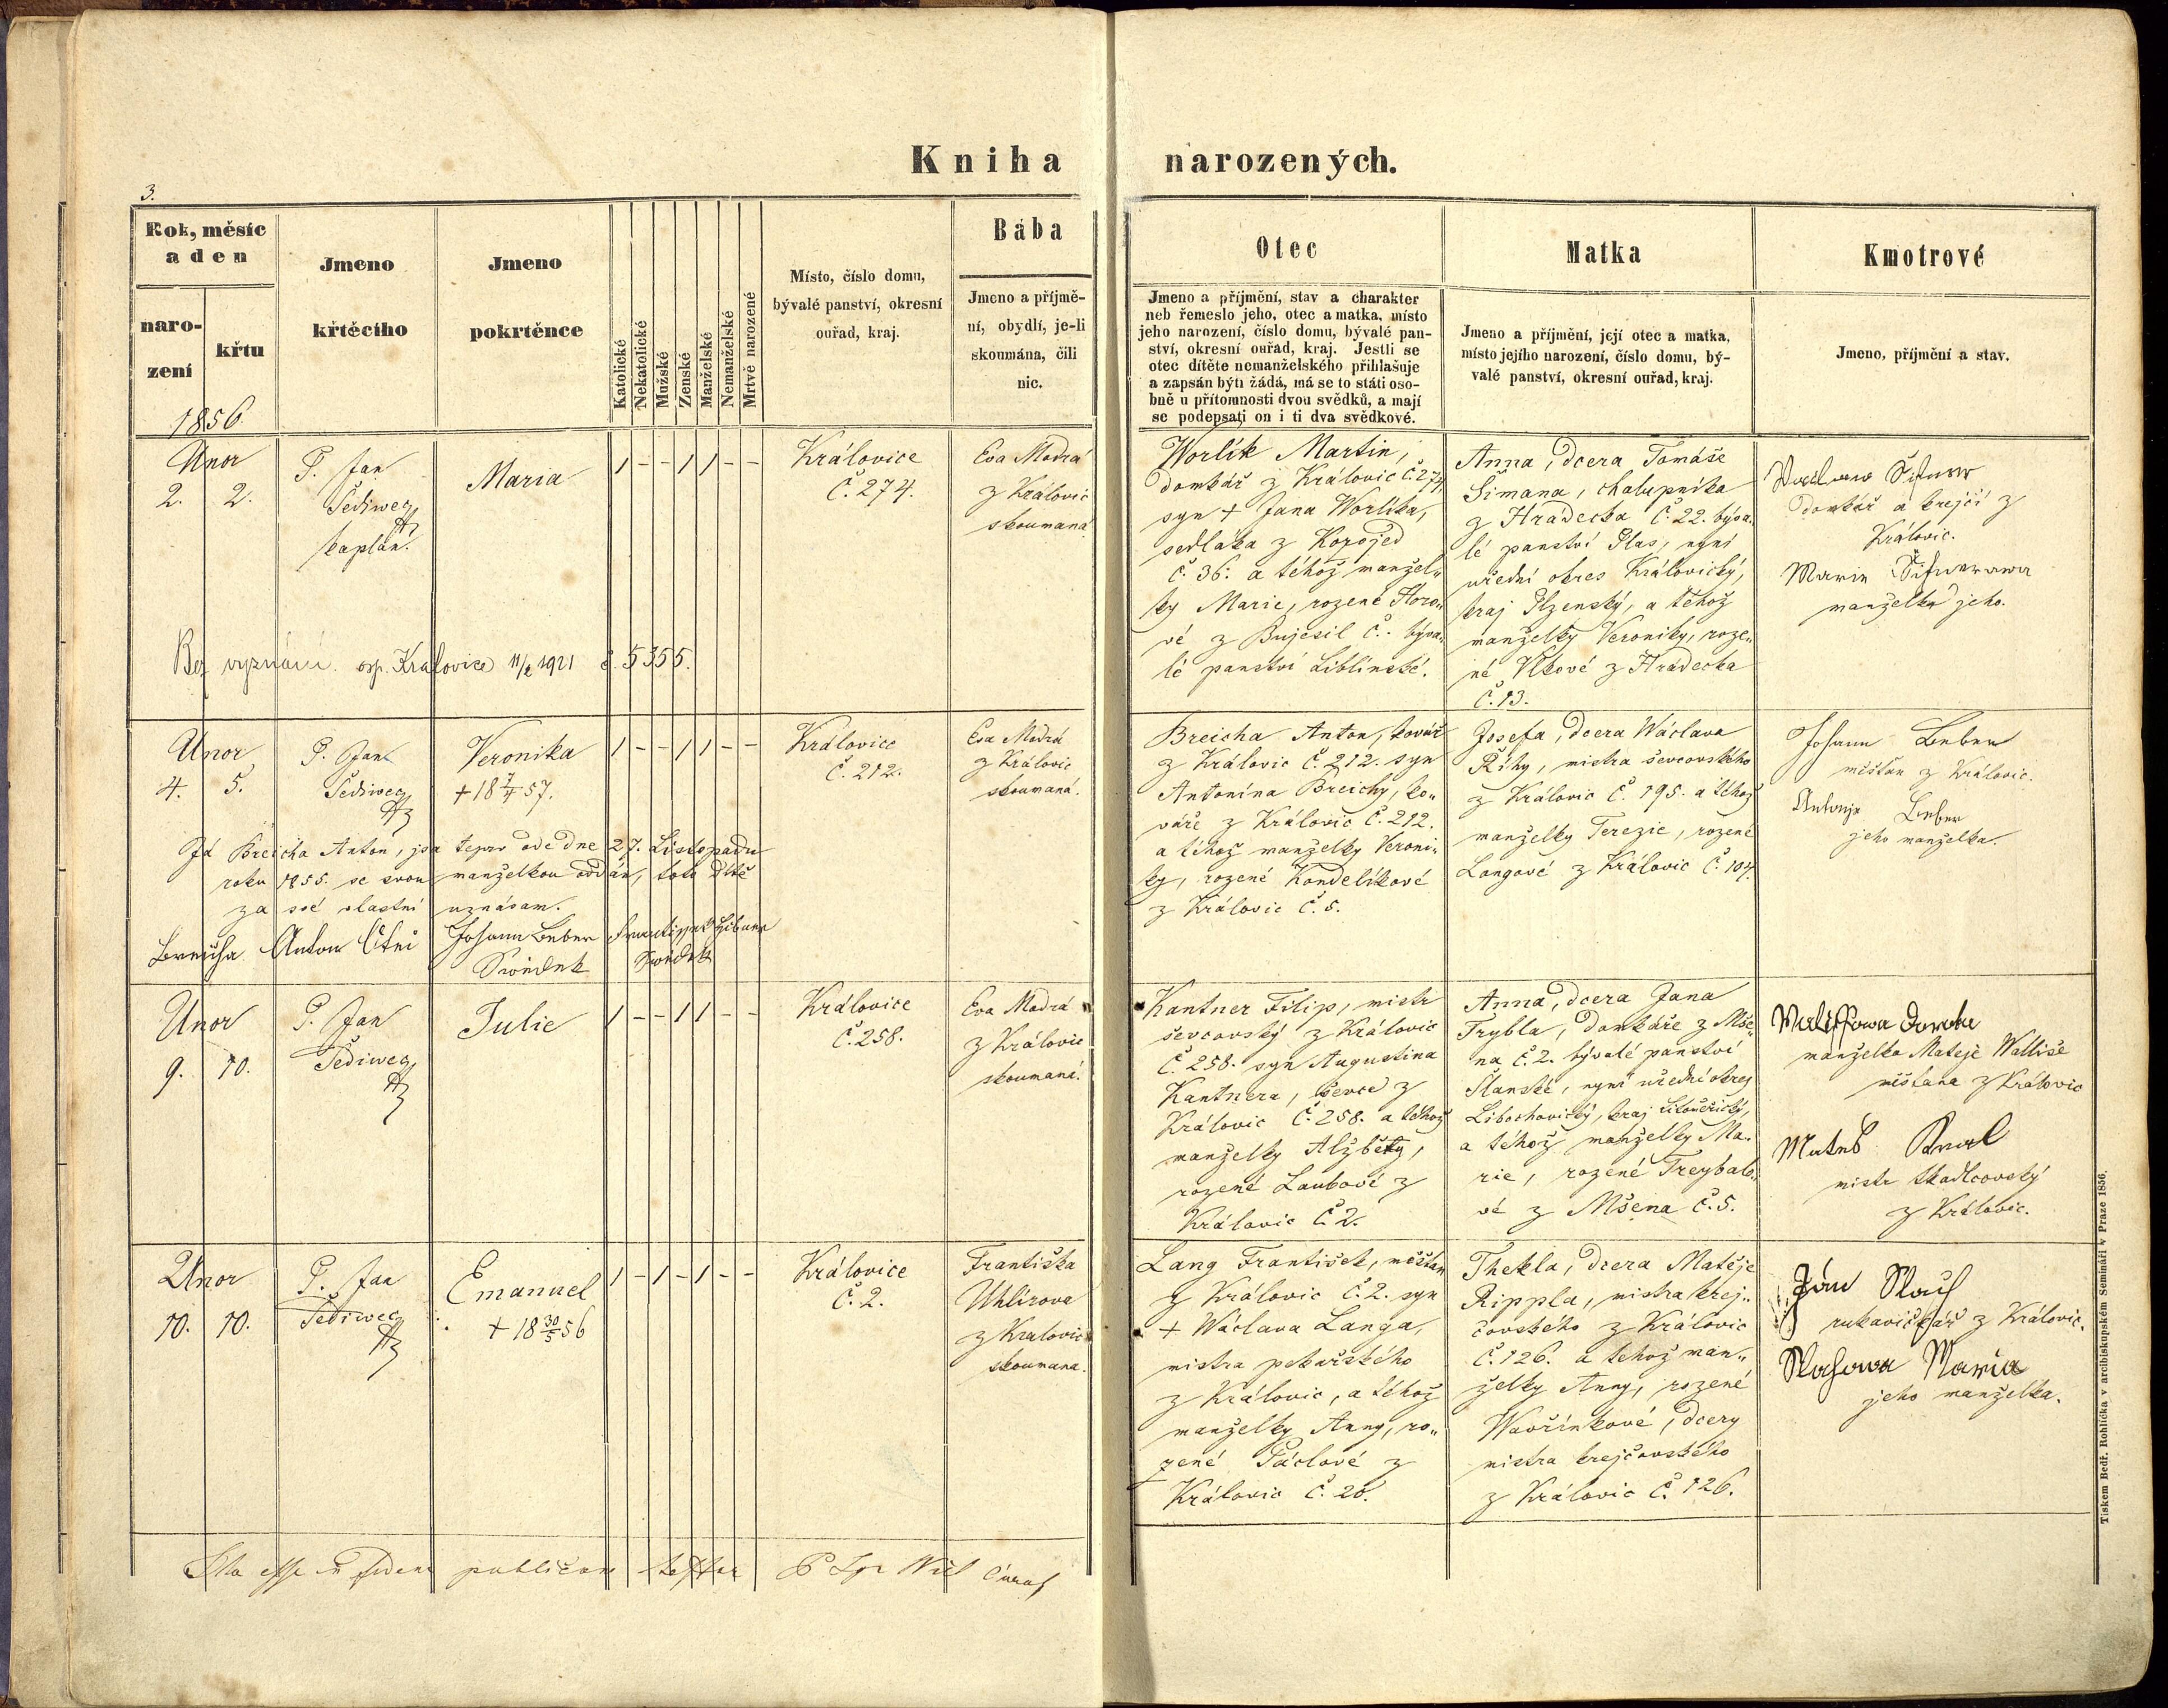 Kniha narozených.
3.
Rok, měsíc
a den
naro-
zení
křtu
1856.
Jmeno
křtěcího
Jmeno
pokrtěnce
Katolické
Nekatolické
Mužské
Ženské
Manželské
Nemanželské
Mrtvě narozené
Místo, číslo domu,
bývalé panství, okresní
ouřad, kraj.
Bába
Jmeno a příjmě-
ní, obydlí, je-li
skoumána, čili
nic.
Otec
Jmeno a příjmění, stav a charakter
neb řemeslo jeho, otec a matka, místo
jeho narození, číslo domu, bývalé pan-
ství, okresní ouřad, kraj. Jestli se
otec dítěte nemanželského přihlašuje
a zapsán býti žádá, má se to státi oso-
bně u přítomnosti dvou svědků, a mají
se podepsati on i ti dva svědkové.
Matka
Jmeno a příjmění, její otec a matka,
místo jejího narození, číslo domu, bý-
valé panství, okresní ouřad, kraj.
Kmotrové
Jmeno, příjmění a stav.
Unor
2. 2.
P. Jan
Šediweg
kaplan.
Maria
1 - - 1 1 - -
Královice
Č. 274.
Eva Modrá
z Královic
skoumaná.
Worlík Martin,
domkář z Královic Č. 274.
syn + Jana Worlíka,
sedláka z Kozojed
Č. 36. a téhož manžel„
ky Marie, rozené Horo„
vé z Bujesil Č.. býva„
lé panství Liblínské.
Anna, dcera Tomáše
Šimana, chalupníka
z Hrádecka Č. 22. býva„
lé panství Plas, nyní
uřední okres Královický,
kraj Plzenský, a téhož
manželky Veroniky, roze„
né Vlkové z Hradecka
Č. 13.
domkář a krejčí z
Královic.
manželka jeho.
Bez vyznání. osp. Kralovice 11/2 1921 č. 5355.
Unor
4. 5.
P. Jan
Šediweg
Veronika
+ 18 7/4 57.
1 - - 1 1 - -
Královice
Č. 212.
Eva Modrá
z Královic
skoumaná.
Breicha Anton, kovář
z Královic Č. 212. syn
Antonína Breichy, ko„
váře z Královic Č. 212.
a téhož manželky Veroni„
ky, rozené Kondelíkové
z Královic Č. 5.
Josefa, dcera Wáclava
Říhy, mistra ševcovského
z Královic Č. 195. a téhož
manželky Terezie, rozené
Langové z Královic Č. 104.
Johann
měšťan z Královic.
Antonja
jeho manželka.
Já Breicha Anton, jsa teprv ode dne 27. Listopadu
roku 1855. se svou manželkou oddán, toto dítě
za své vlastní uznávam.
Breicha Anton Johann František
Swědek Swědek
Unor
9. 10.
P. Jan
Šediweg
Julie
1 - - 1 1 - -
Královice
Č. 258.
Eva Modrá
z Královic
skoumaná.
Kantner Filip, mistr
ševcovský z Královic
Č. 258. syn Augustina
Kantnera, ševce z
Královic Č. 258. a téhož
manželky Alžběty,
rozené Laubové z
Královic Č. 2.
Anna, dcera Jana
Trybla, domkáře z Mše„
na Č. 2. bývalé panství
Slanské, nyní uřední okres
Libochovický, kraj Litoměřický,
a téhož manželky Ma„
rie, rozené Treybalo„
vé z Mšena Č. 5.
manželka Matěje Wallise
měšťana z Královic
Matěj Kral
mistr tkadlcovský
z Královic.
Unor
10. 10.
P. Jan
Šediweg
Emanuel
+ 18 30/5 56
1 - 1 - 1 - -
Královice
Č. 2.
Františka
Uhlirova
z Kralovic
skoumana.
Lang František, měšťan
z Královic Č. 2. syn
+ Wáclava Langa,
mistra pekařského
z Královic, a téhož
manželky Anny, ro„
zené Páclové z
Královic Č. 26.
Thekla, dcera Matěje
Rippla, mistra krej„
čovského z Královic
Č. 126. a téhož man„
želky Anny, rozené
Wavřínkové, dcery
mistra krejčovského
z Královic Č. 126.
Ján
rukavičkář z Královic.
Maria
jeho manželka.
Ita esse in fidem publicam testor
Tiskem Bedř. Rohlíčka v arcibiskupském Semináři v Praze 1856.